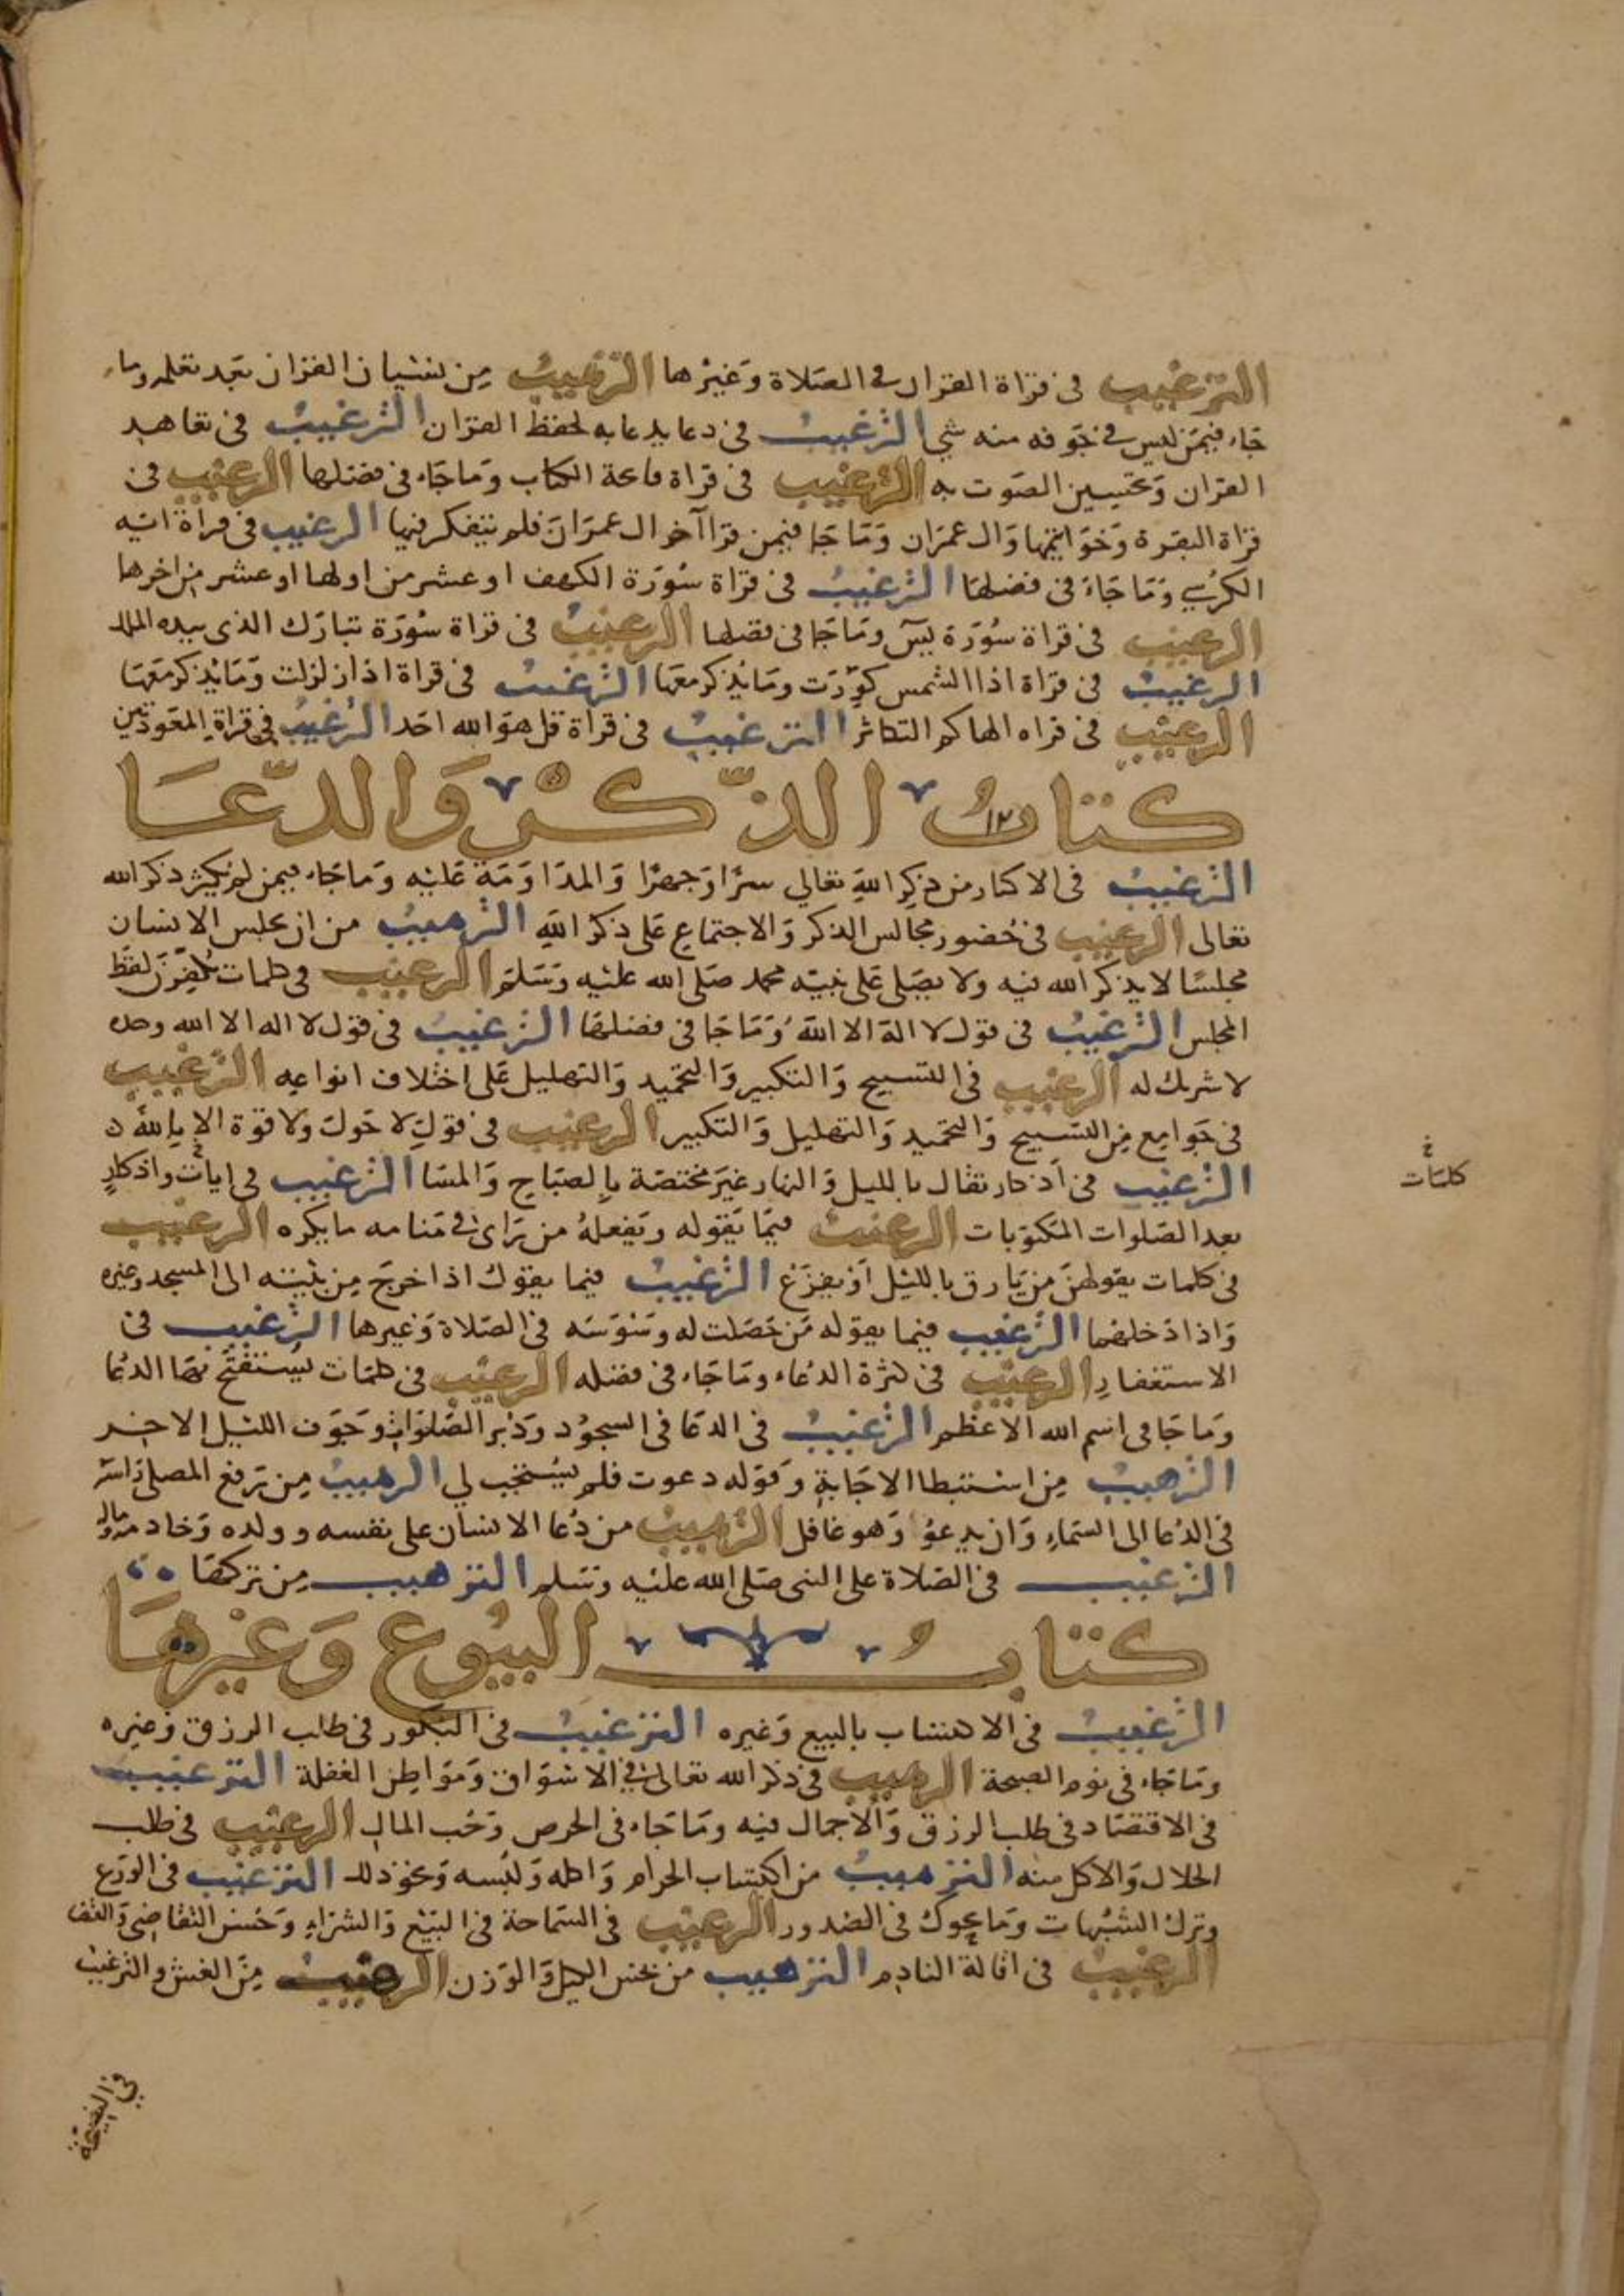 الترغيب في قراة القران في الصلاة وغيرها الترهيب من نسيان القران بعد تعلمه وما
جاء فيمن ليس في جوفه منه شي الترغيب في دعا يدعا به لحفظ القران الترغيب في تعاهد
القران وتحسين الصوت به الترغيب في قراة فاتحة الكتاب وما جاء في فضلها الرغيب في
قراة البقرة وخواتيمها وال عمران وما جا فيمن قرا آخر ال عمران فلم يتفكر فيها الرغيب في قراة اية
الكرسي وما جاء في فضلها الترغيب في قراة سورة الكهف او عشر من اولها او عشر من اخرها
الرغيب في قراة سورة يس وما جا في فضلها الرغيب في قراة سورة تبارك الذي بيده الملك
الرغيب في قراة اذا الشمس كورت وما يذكر معها الترغيب في قراة اذا زلزلت وما يذكر معها
الرغيب في قراه الهاكم التكاثر الترغيب في قراة قل هو الله احد الرغيب في قراة المعوذتين
كتاب الذكر والدعا
١٢
الترغيب في الاكثار من ذكر الله تعالي سرا وجهرا والمداومة عليه وما جاء فيمن لم يكثر ذكر الله
تعالى الرغيب في حضور مجالس الذكر والاجتماع على ذكر الله الترهيب من ان يجلس الانسان
مجلسا لا يذكر الله فيه ولا يصلى على نبيه محمد صلى الله عليه وسلم الرغيب في كلمات يكفرن لغط
المجلس الترغيب في قول لا اله الا الله وما جا في فضلها الترغيب في قول لا اله الا الله وحده
لا شريك له الرغيب في التسبيح والتكبير والتحميد والتهليل على اختلاف انواعه الترغيب
في جوامع من التسبيح والتحميد والتهليل والتكبير الرغيب في قول لا حول ولا قوة الا بالله
الترغيب في اذكار تقال بالليل والنهار غير مختصة بالصباح والمسا الترغيب في ايات واذكار
بعد الصلوات المكتوبات الرغيب فيما يقوله ويفعله من راى في منامه ما يكره الرغيب
خ
كلمات
في كلمات يقولهن من يارق بالليل او يفزع الترغيب فيما يقول اذا خرج من بيته الى المسجد وغيره
واذا دخلهما الترغيب فيما يقوله من حصلت له وسوسه في الصلاة وغيرها الترغيب في
الاستغفار الرغيب في كثرة الدعاء وما جاء في فضله الرغيب في كلمات يستفتح بها الدعا
وما جا في اسم الله الاعظم الترغيب في الدعا في السجود ودبر الصلوات وجوف الليل الاخير
الترهيب من استبطا الاجابة وقوله دعوت فلم يستجب لي الرهيب من رفع المصلى راسه
في الدعا الى السماء وان يدعو وهو غافل الترهيب من دعا الانسان على نفسه وولده وخادمه وماله
الترغيب في الصلاة على النبي صلى الله عليه وسلم الترهيب من تركها
كتاب البيوع وغيرها
الترغيب في الاكتساب بالبيع وغيره الترغيب في البكور في طلب الرزق وغيره
وما جاء في نوم الصبحة الرهيب في ذكر الله تعالى في الاسواق ومواطن الغفلة الترغيب
في الاقتصاد في طلب الرزق والاجمال فيه وما جاء في الحرص وحب المال الرغيب في طلب
الحلال والاكل منه الترهيب من اكتساب الحرام واكله ولبسه ونحو ذلك الترغيب في الورع
وترك الشبهات وما يحوك في الصدور الرغيب في السماحة في البيع والشراء وحسن التقاضي والقضا
الرغيب في اقالة النادم الترهيب من بخس الكيل والوزن الرهيب من الغش والترغيب
في النصيحة